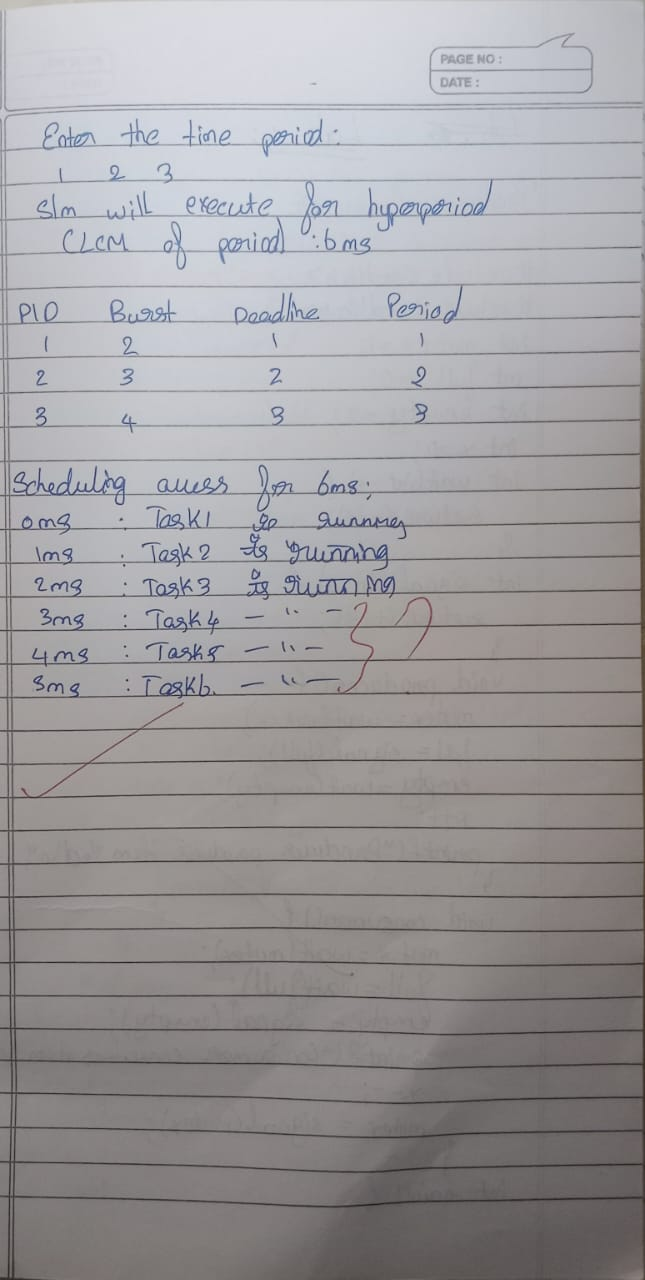 PAGE NO :
DATE :
Enter the time period:
1 2 3
S/m will execute for hyperperiod
(LCM of period) : 6ms
PID Burst Deadline Period
1 2 1 1
2 3 2 2
3 4 3 3
Scheduling for 6ms;
0ms : Task1 is running
1ms : Task2 is running
2ms : Task3 is running
3ms : Task4 — " —
4ms : Task5 — " —
5ms : Task6. — " —